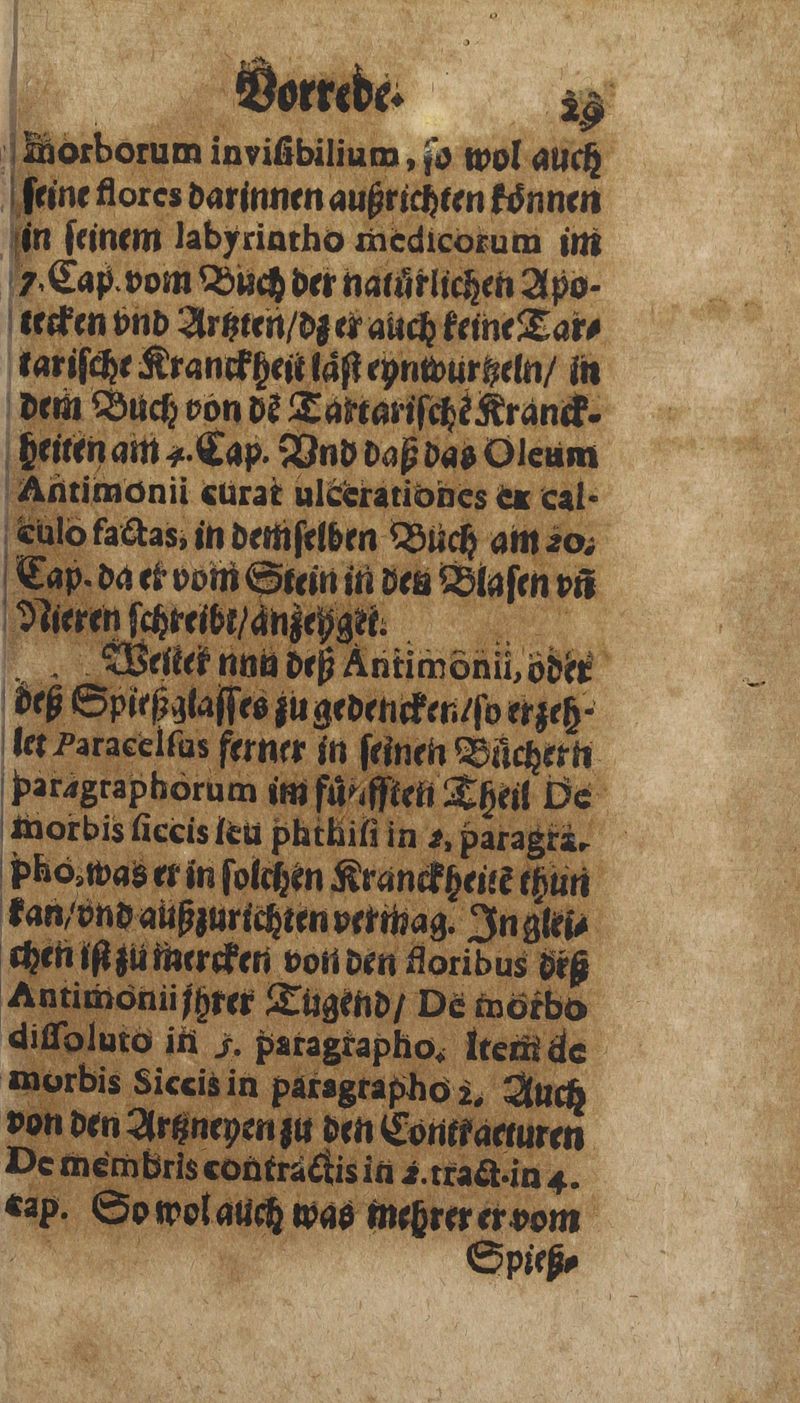 Vorrede. 29
morborum inviſibilium, ſo wol auch
ſeine flores darinnen außrichten koͤnnen
in ſeinem labyrintho medicorum im
7. Cap. vom Buch der natuͤrlichen Apo-
tecken vnd Artzten/dz er auch keine Tar⸗
tariſche Kranckheit laͤſt eynwurtzeln/ in
dem Buch von dẽ Tartariſchẽ Kranck-
heiten am 4. Cap. Vnd daß das Oleum
Antimonii curat ulcerationes ex cal-
culo factas, in demſelben Buch am 20.
Cap. da er vom Stein in den Blaſen vñ
Nieren ſchreibt/anzeyget.
Weiter nun deß Antimonii, oder
deß Spießglaſſes zu gedencken/ſo erzeh-
let Paracelſus ferner in ſeinen Buͤchern
paragraphorum im fuͤnfften Theil De
morbis ſiccis ſeu phthiſi in 2. paragra-
pho, was er in ſolchen Kranckheitẽ thun
kan/vnd außzurichten vermag. In glei⸗
chen iſt zu mercken von den floribus deß
Antimonii jhrer Tugend/ De morbo
diſſoluto in 5. paragrapho. Item de
morbis Siccis in paragrapho 2. Auch
von den Artzneyen zu den Contracturen
De membris contractis in 2. tract. in 4.
cap. So wol auch was mehrer er vom
Spieß⸗